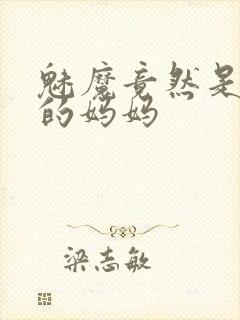 魅魔竟然是
的妈妈
梁志敏